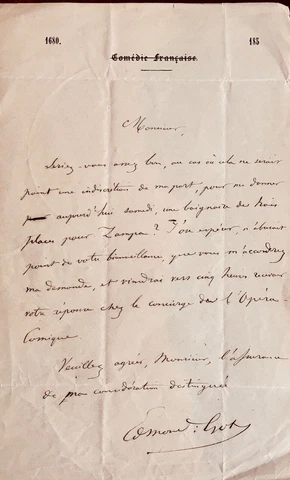 1680. 185
Comédie Française.
Monsieur,
Seriez-vous assez bon, au cas où cela ne serait
point une indiscrétion de ma part, pour me donner
aujourd'hui samedi, une baignoire de trois
places pour Zampa? J'ose espérer, n'abusant
point de votre bienveillance, que vous m'accorderez
ma demande, et viendrai vers cinq heures recevoir
votre réponse chez le concierge de l'Opéra-
Comique.
Veuillez agréer, Monsieur, l'assurance
de ma considération distinguée
Edmond Got